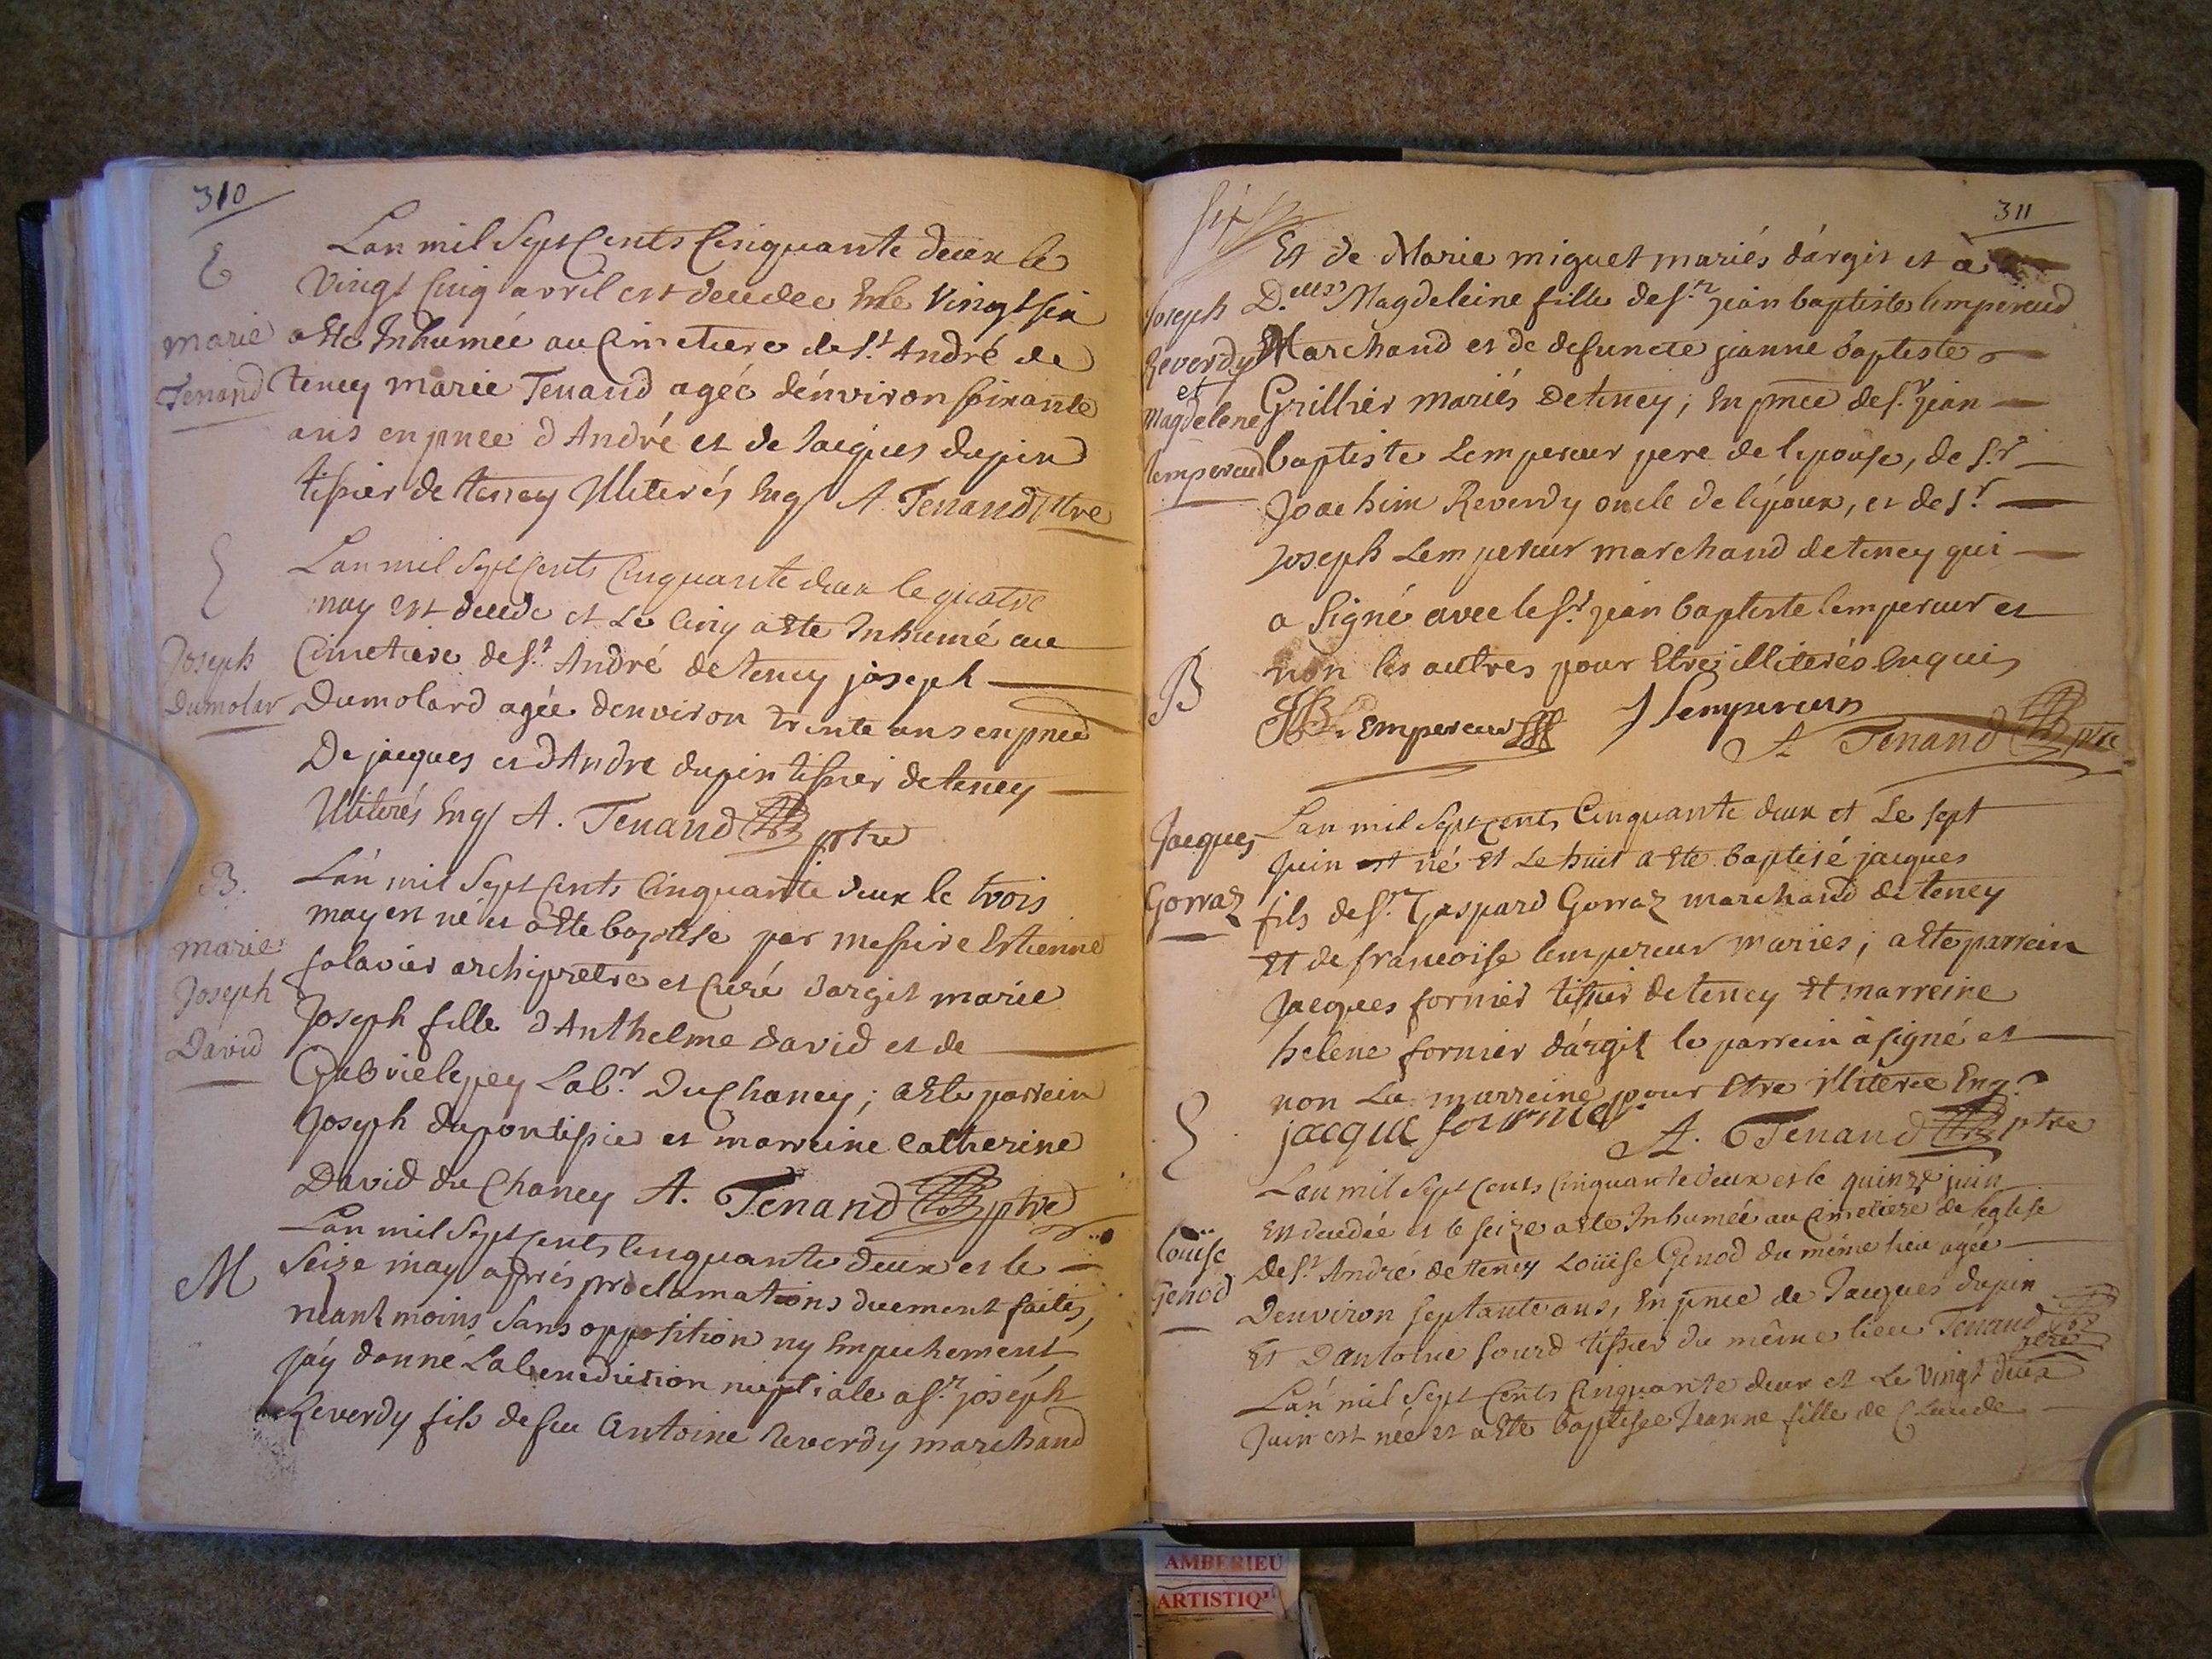 310
E
marie
Tenand
Lan mil Sept Cents Cinquante deux le
Vingt Cinq avril est decedee Et le Vingt six
a Ete Inhumée au Cimetiere de St André de
teney marie Tenand agée d'environ soixante
ans en pnce d'André et de Jacques dupin
tissier de teney Illiterés Enq A. Tenand ptre
E
Joseph
Dumolar
Lan mil Sept Cents Cinquante deux le quatre
may est decede et Le Cinq a Ete Inhumé au
Cimetiere de St André de teney joseph
Dumolard agée d'environ trente ans en pnce
De jacques et d'Andre dupin tissier de teney
Illiterés Enq A. Tenand ptre
B.
marie
Joseph
David
Lán mil Sept Cents Cinquante deux le trois
may est né et a Ete baptise par messire Estienne
folavier archipretre et Curé d'argit marie
Joseph fille d'Anthelme david et de
Gabrielle pey Labr Du Chaney; a Ete parrein
Joseph dupon tissier et marreine Catherine
David du Chaney A. Tenand ptre
M
Lan mil Sept Cents Cinquante deux et le
Seize may aprés proclamations duement faites,
neantmoins Sans opposition ny Empechement
j'áy donné La benediction nuptiale a Sr joseph
Reverdy fils de feu Antoine Reverdy marchand
311
six
Joseph
Reverdy
et
Magdelene
lempereud
Et de Marie miguet mariés d'árgit et à
Delle Magdeleine fille de Sr jean baptiste lempereud
Marchand et de defuncte jeanne baptiste
Grillier mariés De teney; En pnce de Sr jean
baptiste Lempereur pere de lepouse, de Sr
Joachim Reverdy oncle de l'époux, et de Sr
Joseph Lempereur marchand de teney qui
a Signé avec le Sr jean baptiste lempereur et
non les autres pour Etre illiterés Enquis
JB Lempereur J Lempereur
A. Tenand ptre
B
Jacques
Gorraz
Lan mil Sept Cents Cinquante deux et Le sept
Juin est né Et Le huit a Ete baptisé jacques
fils de Sr Gaspard Gorraz marchand de teney
Et de francoise lempereur maries; a Ete parrein
Jacques fornier tissier de teney Et marreine
helene fornier d'árgit le parrein à signé et
non La marreine pour Etre illiteree Enq
jacque fournier
A. Tenand ptre
E
Loüise
Genod
Lan mil Sept Cents Cinquante deux et le quinze juin
Est decedée et le seize a Ete Inhumée au Cimetiere de l'eglise
De St André de teney Loüise Genod du même lieu agée
D'environ septante ans, En pnce de Jacques dupin
Et D'antoine sourd tissier du même lieu Tenand ptre
Lán mil Sept Cents Cinquante deux et Le Vingt deux
Juin est née et a Ete baptisée Jeanne fille de Claude
AMBERIEU
ARTISTIQU